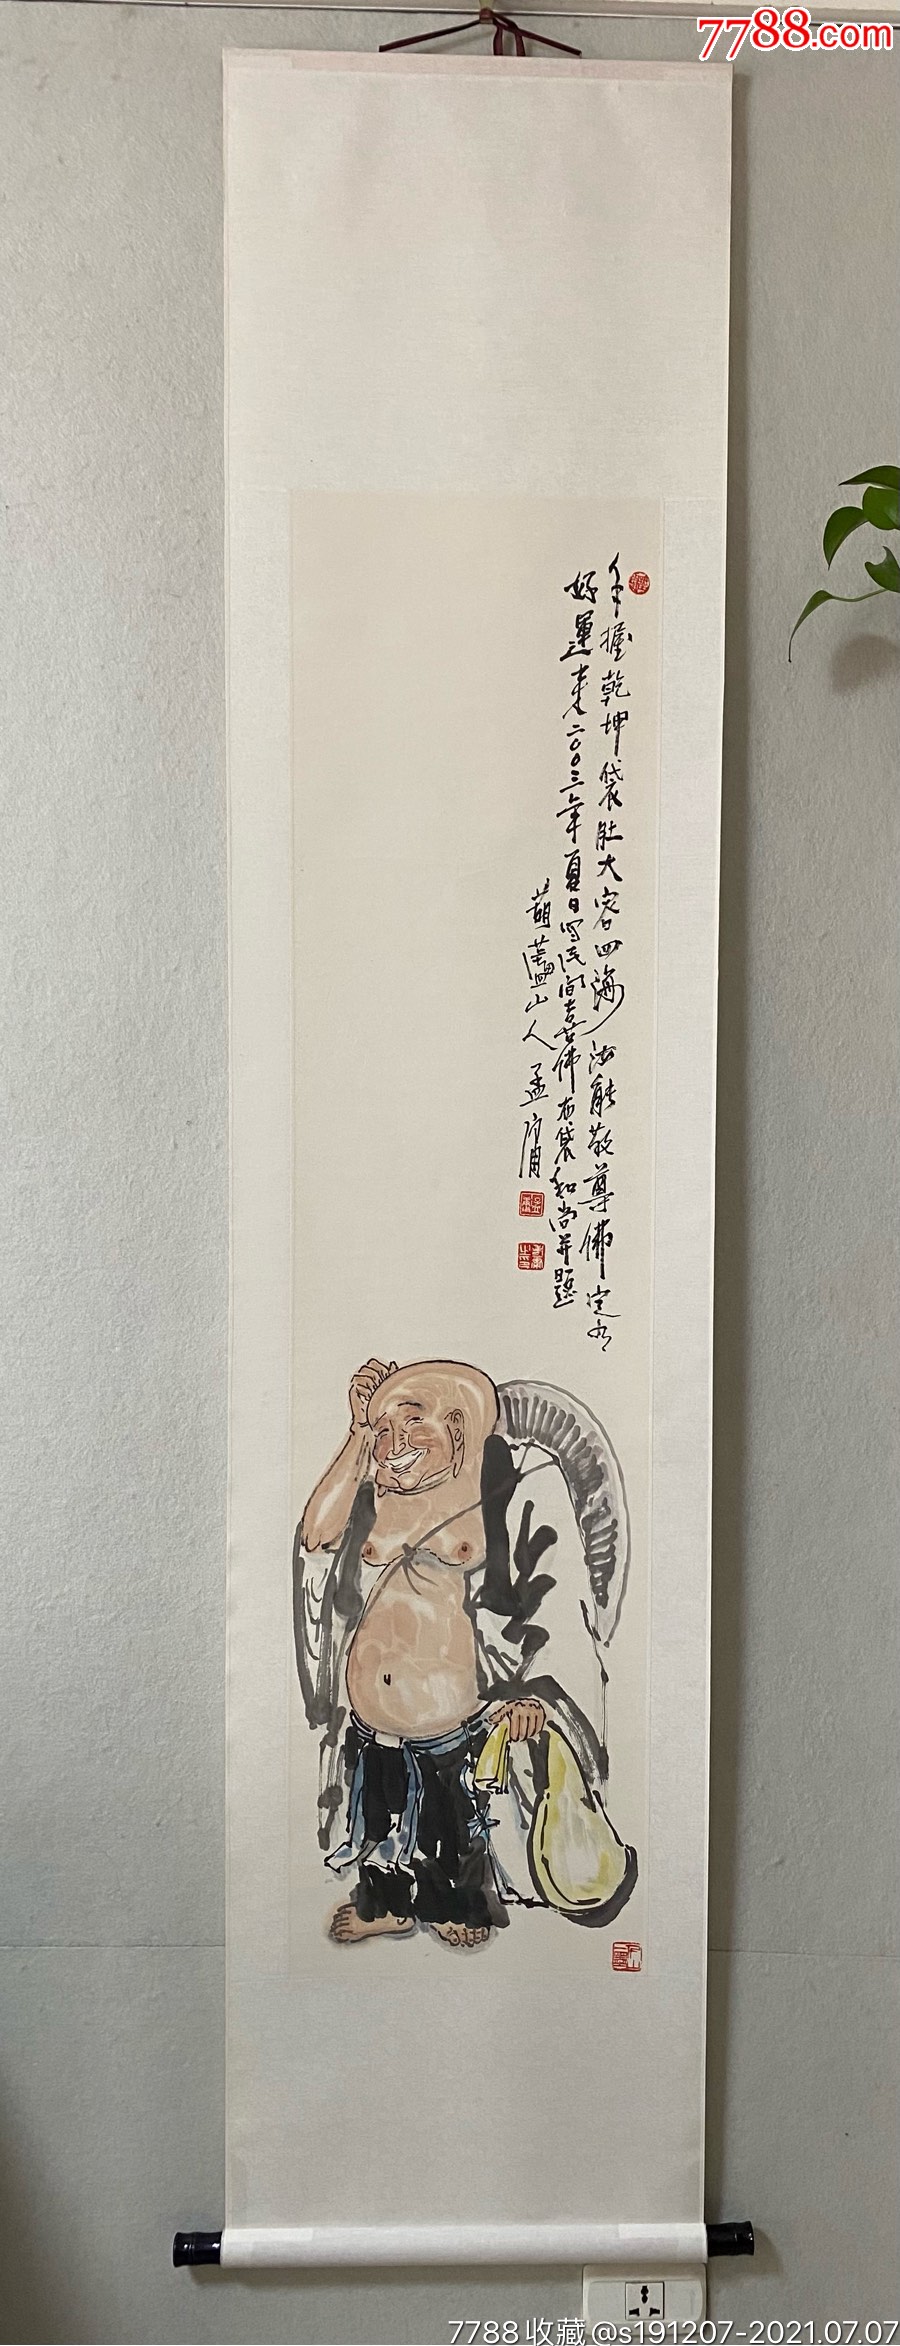 7788.com
手握乾坤袋肚大容四海法能敬尊佛定有
好運来二00三年夏日写民间吉喜佛布袋和尚并题
葫蘆山人孟庸
7788收藏@s191207-2021.07.07